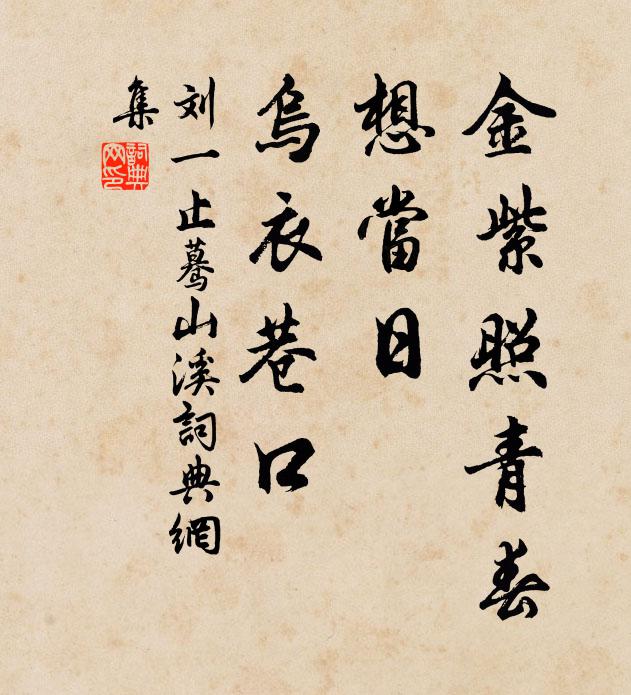 金紫照青春
想當日
烏衣巷口
刘一止蓦山溪詞典網
集
詞典
网印